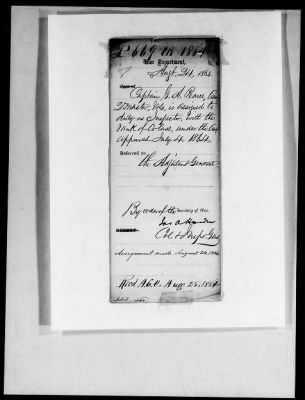 P 669 CB 1864
War Department,
Augt. 24, 1864.
Captain G. A. Pierce, Com
Subsister, Vols, is assigned to
duty as Inspector, with the
rank of Colonel, under the Act
approved July 4. 1864.
Referred to
the Adjutant General
By order of the Secretary of War.
Jas. A. Hardie
Col. & Insp. Genl
Assignment made August 24, 1864
Recd A.G.O. Aug 25, 1864